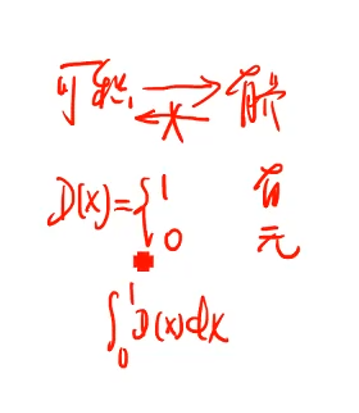 可积 → 有界
↚
D(x)={1 有
0 无
∫₀¹D(x)dx